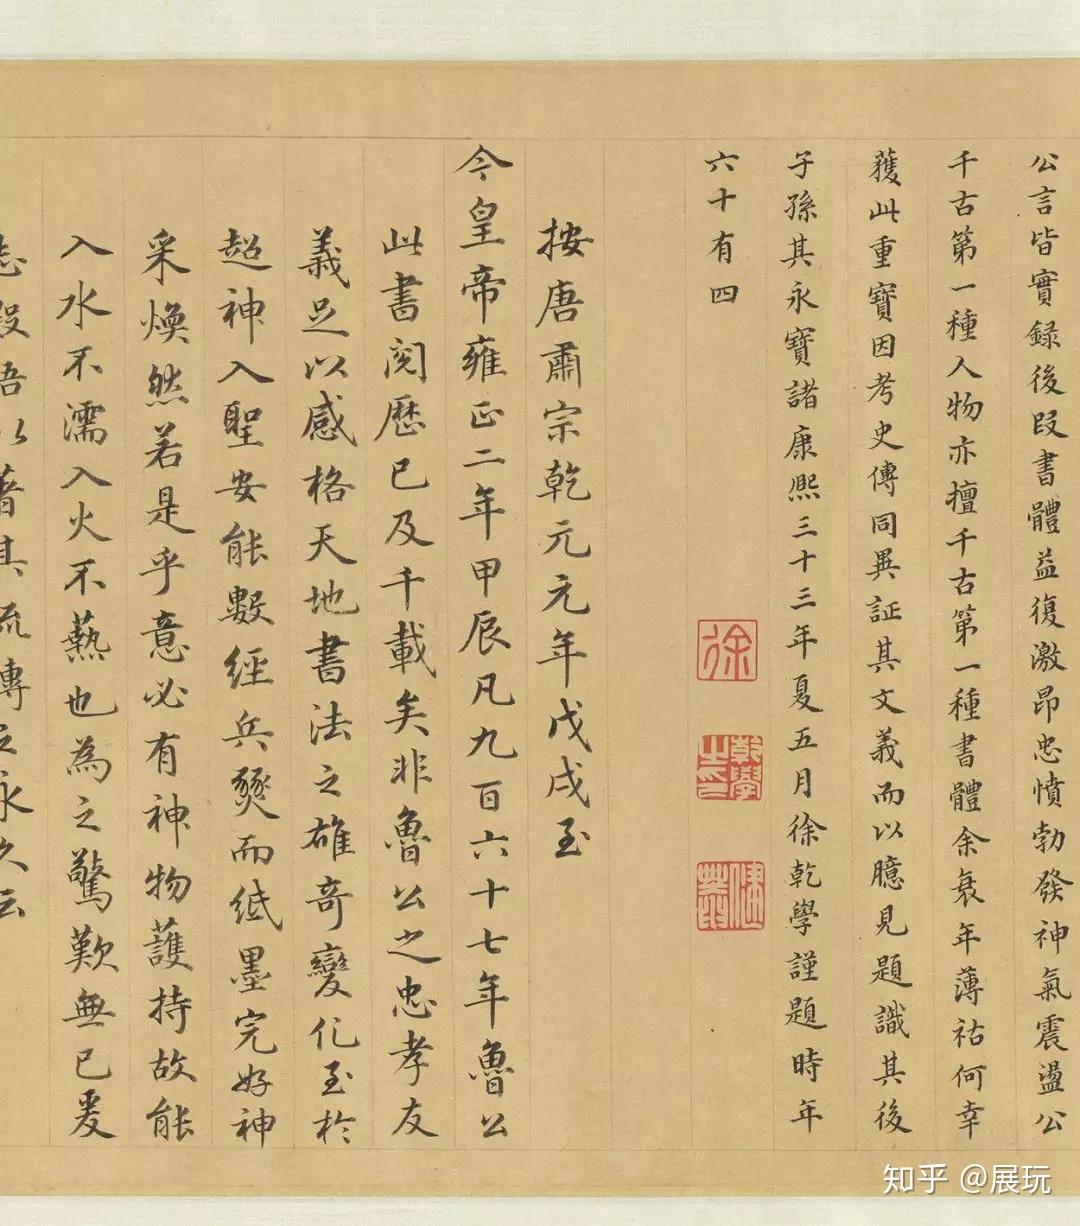 公言皆實録後段書體益復激昂忠憤勃發神氣震盪公
千古第一種人物亦擅千古第一種書體余衰年薄祜何幸
獲此重寶因考史傳同異証其文義而以臆見題識其後
子孫其永寶諸康熙三十三年夏五月徐乾學謹題時年
六十有四
徐
乾學之印
健菴
按唐肅宗乾元元年戊戌至
今皇帝雍正二年甲辰凡九百六十七年魯公
此書閱歷已及千載矣非魯公之忠孝友
義足以感格天地書法之雄奇變化至於
超神入聖安能數經兵燹而紙墨完好神
采煥然若是乎意必有神物護持故能
入水不濡入火不爇也為之驚歎無已爰
志段語以著其流傳之永久云
知乎 @展玩